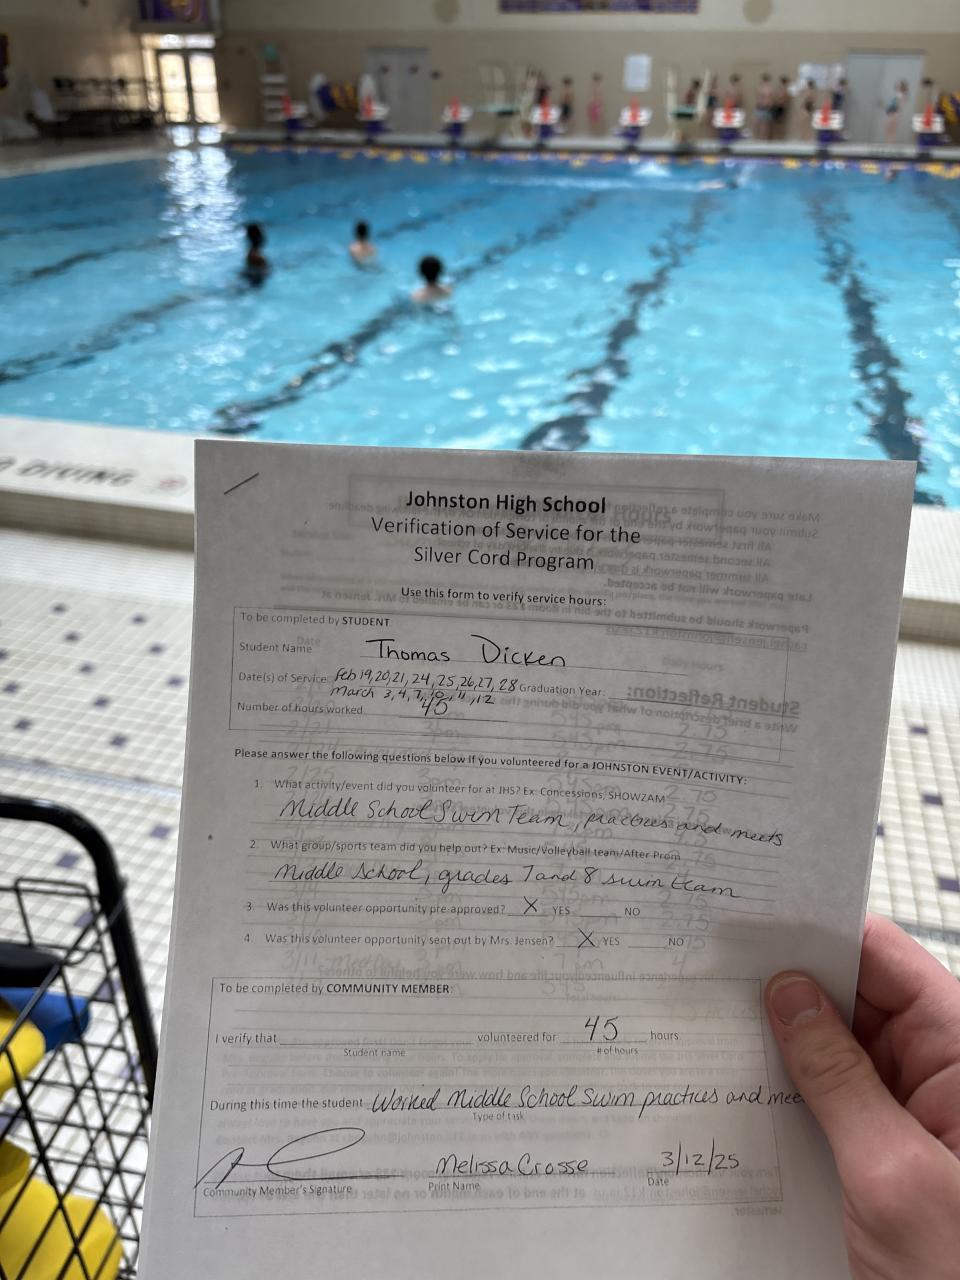 O DIVING
Johnston High School
Verification of Service for the
Silver Cord Program
Use this form to verify service hours:
To be completed by STUDENT
Student Name Thomas Dicken
Date(s) of Service: Feb 19,20,21, 24, 25, 26, 27, 28 Graduation Year:
March 3, 4, 7, 10, 11, 12
Number of hours worked 45
Please answer the following questions below if you volunteered for a JOHNSTON EVENT/ACTIVITY:
1. What activity/event did you volunteer for at JHS? Ex: Concessions, SHOWZAM
Middle School Swim Team, practices and meets
2. What group/sports team did you help out? Ex: Music/Volleyball team/After Prom
Middle School, grades 7 and 8 swim team
3. Was this volunteer opportunity pre-approved? X YES NO
4. Was this volunteer opportunity sent out by Mrs. Jensen? X YES NO
To be completed by COMMUNITY MEMBER:
I verify that volunteered for 45 hours
Student name # of hours
During this time the student Worked Middle School Swim practices and mee
Type of task
Melissa Crosse 3/12/25
Community Member's Signature Print Name Date